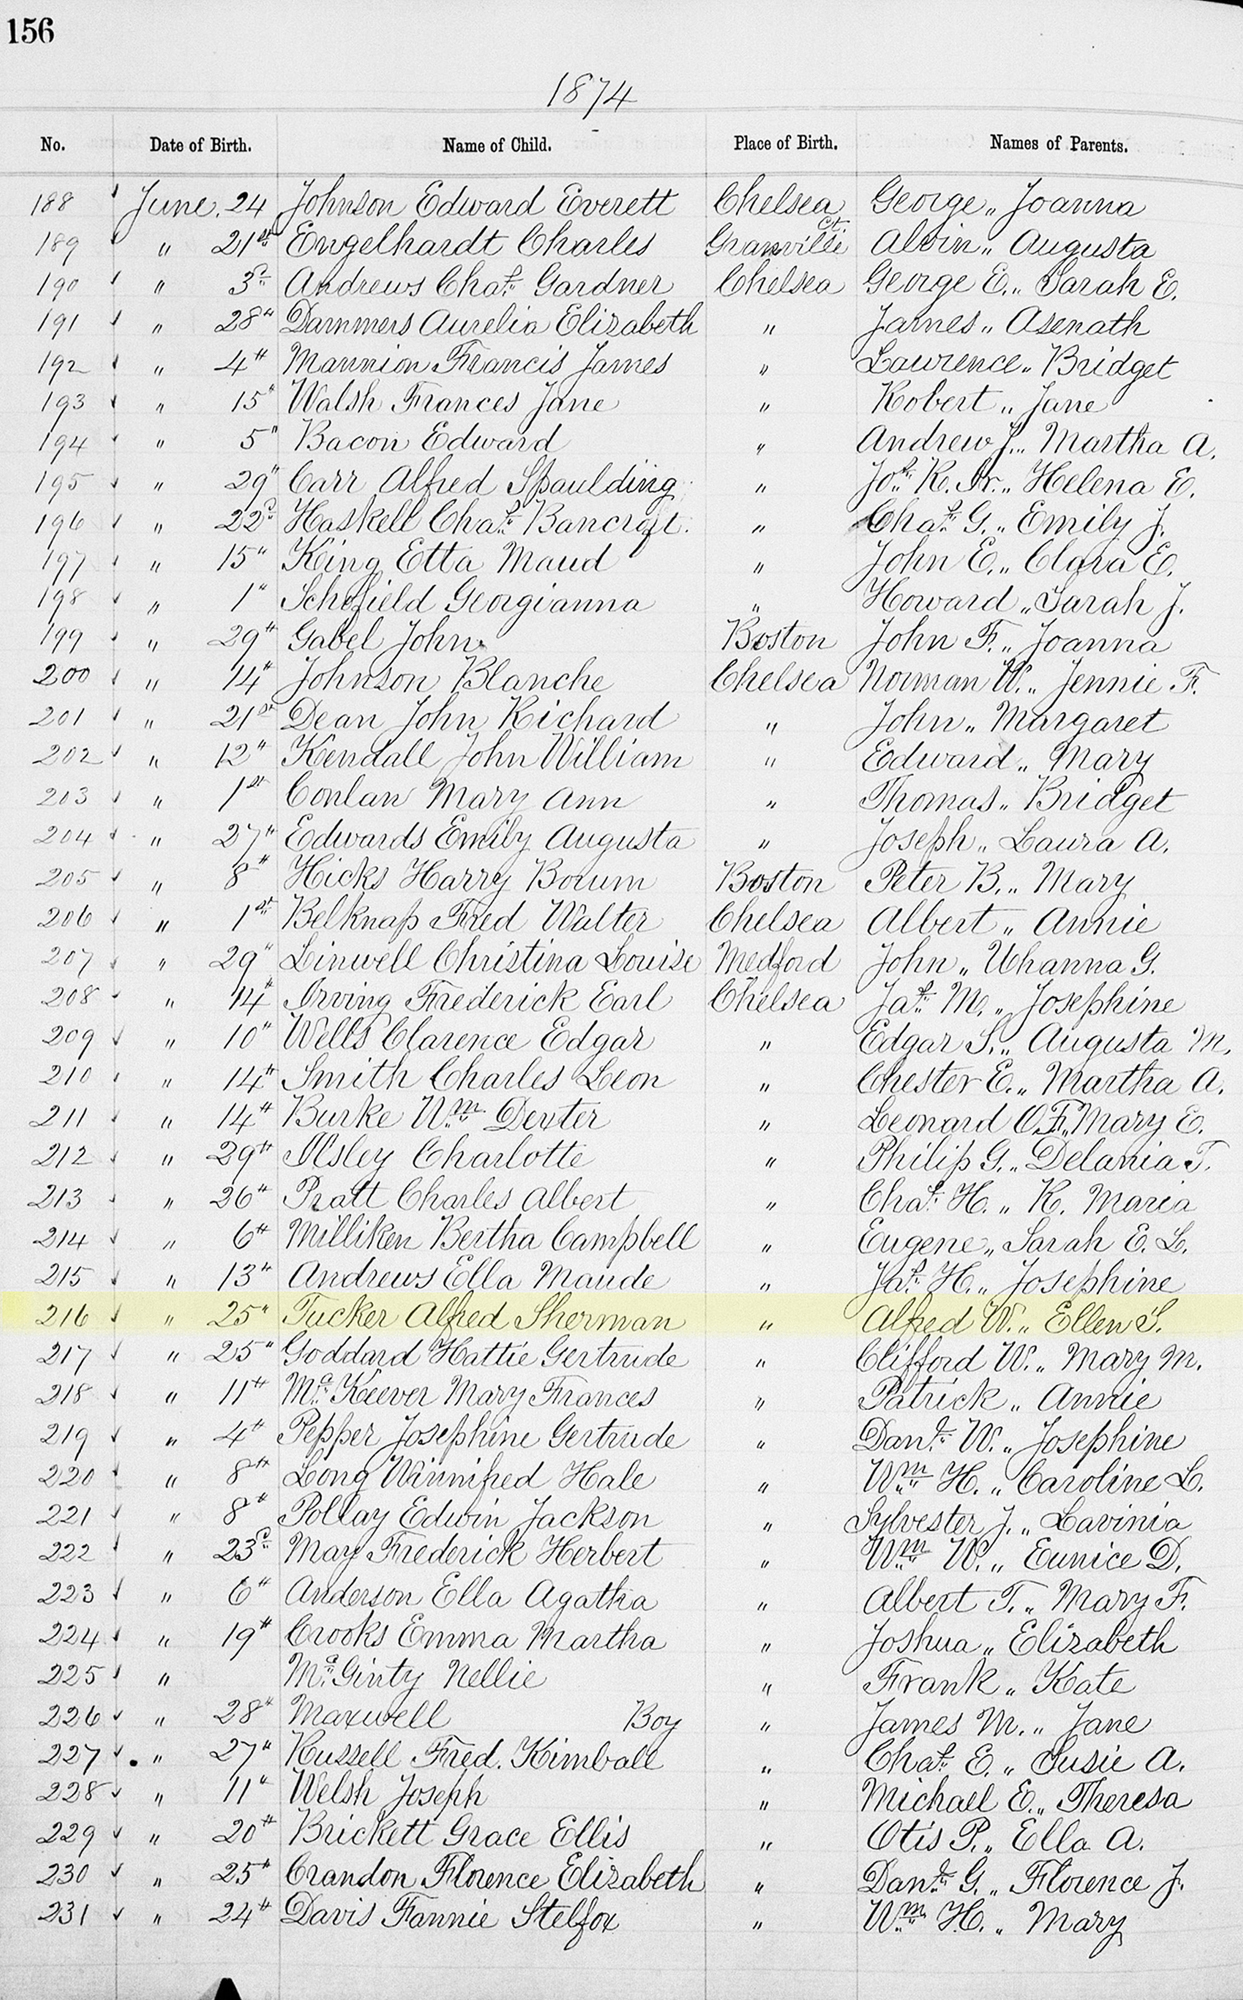 156
1874
No. Date of Birth. Name of Child. Place of Birth. Names of Parents.
188 June. 24 Johnson Edward Everett Chelsea George „ Joanna
189 „ 21st Engelhardt Charles Granville Ct. Alvin „ Augusta
190 „ 3d Andrews Chas. Gardner Chelsea George E. „ Sarah E.
191 „ 28" Dammers Aurelia Elizabeth „ James „ Asenath
192 „ 4th Mannion Francis James „ Lawrence „ Bridget
193 „ 15" Walsh Frances Jane „ Robert „ Jane
194 „ 5" Bacon Edward „ Andrew J. „ Martha A.
195 „ 29" Carr Alfred Spaulding „ Jos. K. Jr. „ Helena E.
196 „ 22d Haskell Chas. Bancroft. „ Chas. G. „ Emily J.
197 „ 15" King Etta Maud „ John E. „ Clara E.
198 „ 1" Schofield Georgianna „ Howard „ Sarah J.
199 „ 29th Gabel John Boston John F. „ Joanna
200 „ 14th Johnson Blanche Chelsea Norman W. „ Jennie F.
201 „ 21st Dean John Richard „ John „ Margaret
202 „ 12" Kendall John William „ Edward „ Mary
203 „ 1st Conlan Mary Ann „ Thomas „ Bridget
204 „ 27th Edwards Emily Augusta „ Joseph „ Laura A.
205 „ 8th Hicks Harry Borum Boston Peter B. „ Mary
206 „ 1st Belknap Fred Walter Chelsea Albert „ Annie
207 „ 29" Linwell Christina Louise Medford John „ Uhanna G.
208 „ 14th Irving Frederick Earl Chelsea Jas. M. „ Josephine
209 „ 10" Wells Clarence Edgar „ Edgar S. „ Augusta M.
210 „ 14th Smith Charles Leon „ Chester E. „ Martha A.
211 „ 14th Burke Wm. Dexter „ Leonard O. F. „ Mary E.
212 „ 29th Ilsley Charlotte „ Philip G. „ Delania T.
213 „ 26th Pratt Charles Albert „ Chas. H. „ K. Maria
214 „ 6th Milliken Bertha Campbell „ Eugene „ Sarah E. L.
215 „ 13th Andrews Ella Maude „ Jas. H. „ Josephine
216 „ 25" Tucker Alfred Sherman „ Alfred W. „ Ellen S.
217 „ 25" Goddard Hattie Gertrude „ Clifford W. „ Mary M.
218 „ 11th Mc.Keever Mary Frances „ Patrick „ Annie
219 „ 4th Pepper Josephine Gertrude „ Danl. W. „ Josephine
220 „ 8th Long Winnifred Hale „ Wm. H. „ Caroline L.
221 „ 8th Pollay Edwin Jackson „ Sylvester J. „ Lavinia
222 „ 23d May Frederick Herbert „ Wm. W. „ Eunice D.
223 „ 6th Anderson Ella Agatha „ Albert T. „ Mary F.
224 „ 19th Crooks Emma Martha „ Joshua „ Elizabeth
225 „ Mc.Ginty Nellie „ Frank „ Kate
226 „ 28th Maxwell Boy „ James M. „ Jane
227 „ 27th Russell Fred. Kimball „ Chas. E. „ Susie A.
228 „ 11th Welsh Joseph „ Michael E. „ Theresa
229 „ 20th Brickett Grace Ellis „ Otis P. „ Ella A.
230 „ 25th Crandon Florence Elizabeth „ Danl. G. „ Florence J.
231 „ 24th Davis Fannie Stelfox „ Wm. H. „ Mary